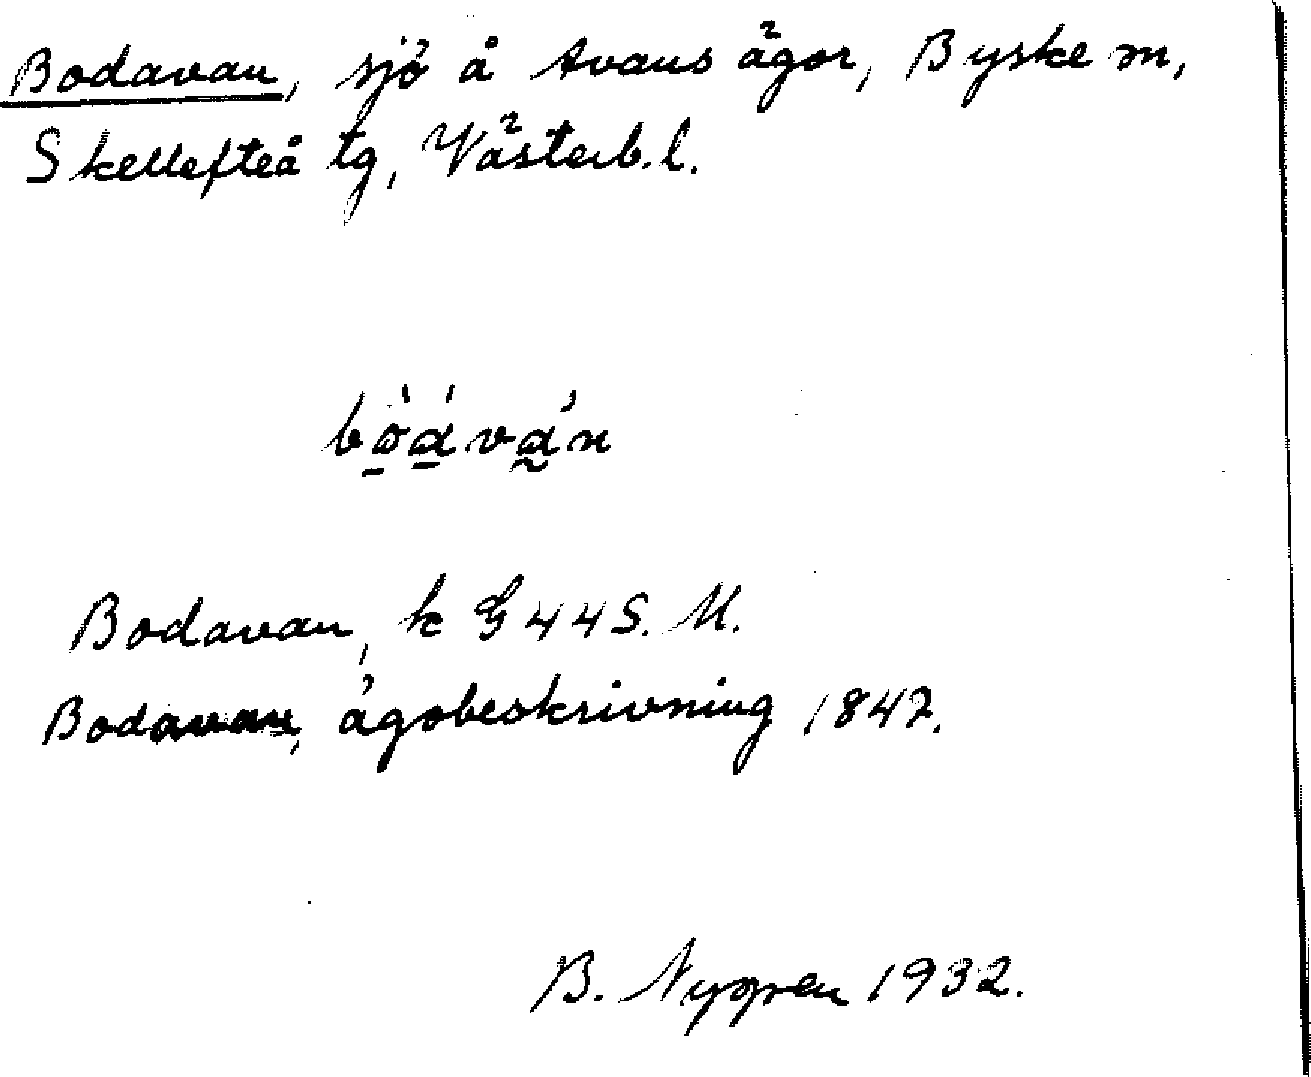 Bodavan, sjö å Avans ägor, Byske sn,
Skellefteå tg, Västerb.l.
bo̱a̱va̰n
Bodavan, k G 44 S. U.
Bodavan, ägobeskrivning 1842.
B. Nygren 1932.